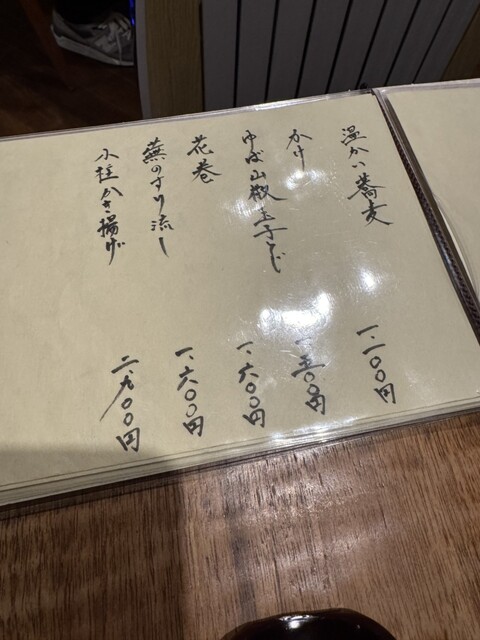 温かい蕎麦
かけ 一、一〇〇円
ゆば山椒玉子とじ 一、五〇〇円
花巻 一、六〇〇円
蕪のすり流し 一、六〇〇円
小柱かき揚げ 二、九〇〇円